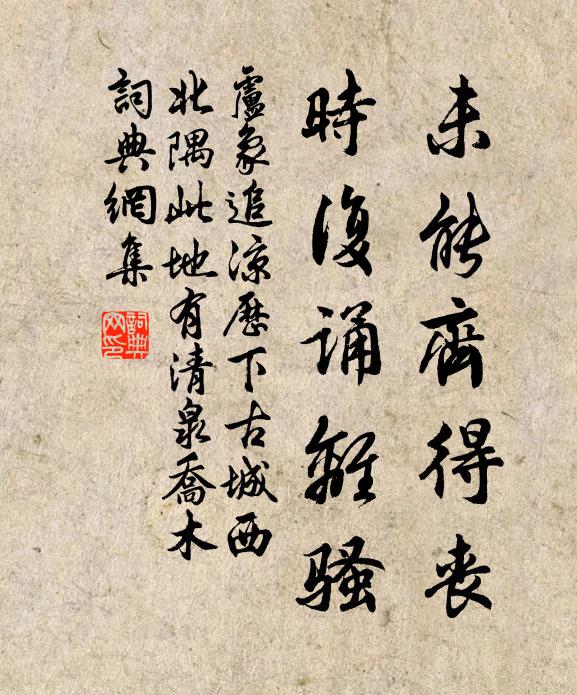 未能齊得喪
時復誦離騷
盧象追涼歷下古城西
北隅此地有清泉喬木
詞典網集
詞典網印